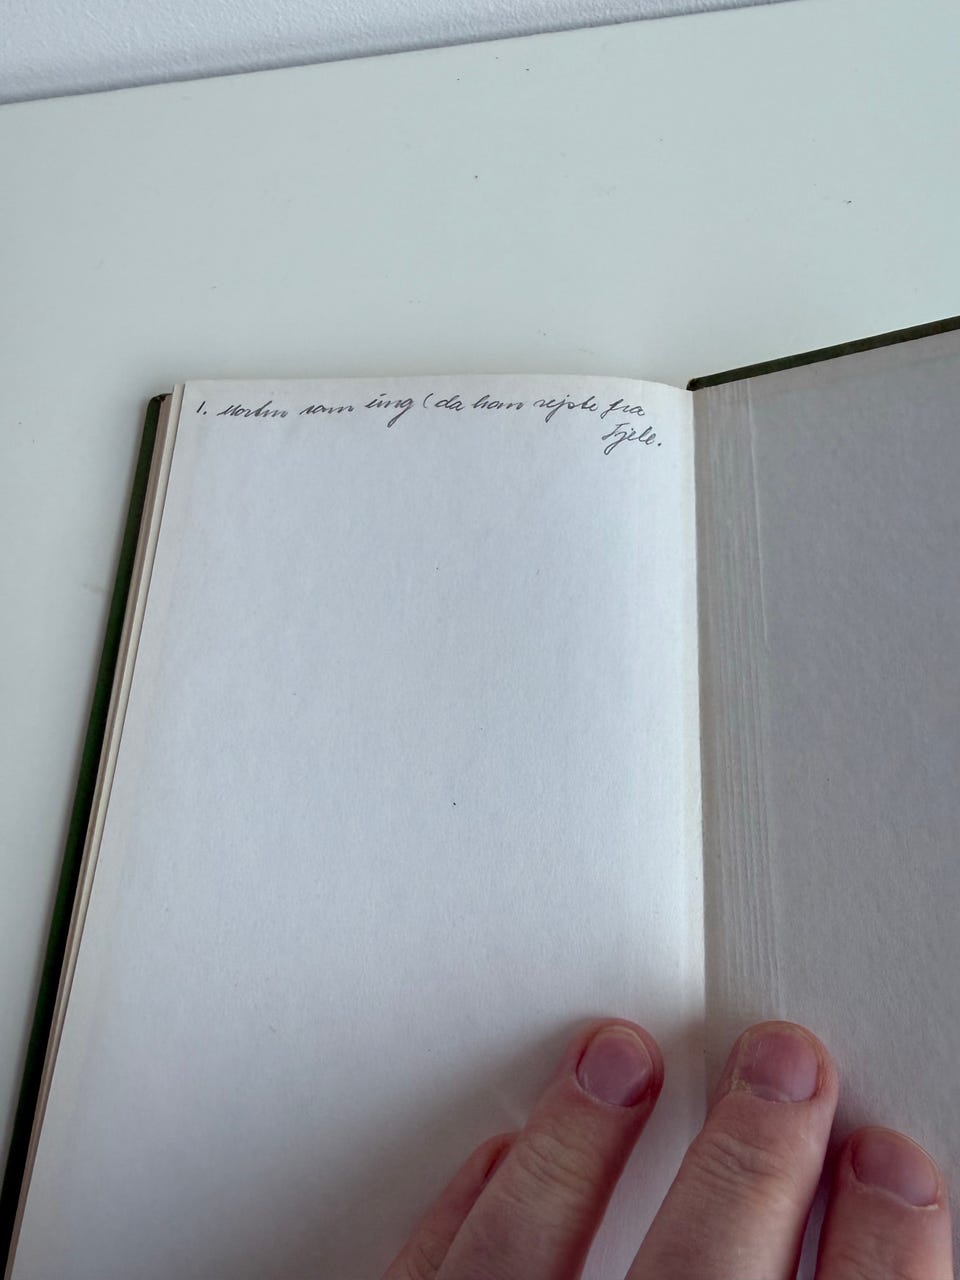 1. Morten som ung (da han rejste fra
Tjele.